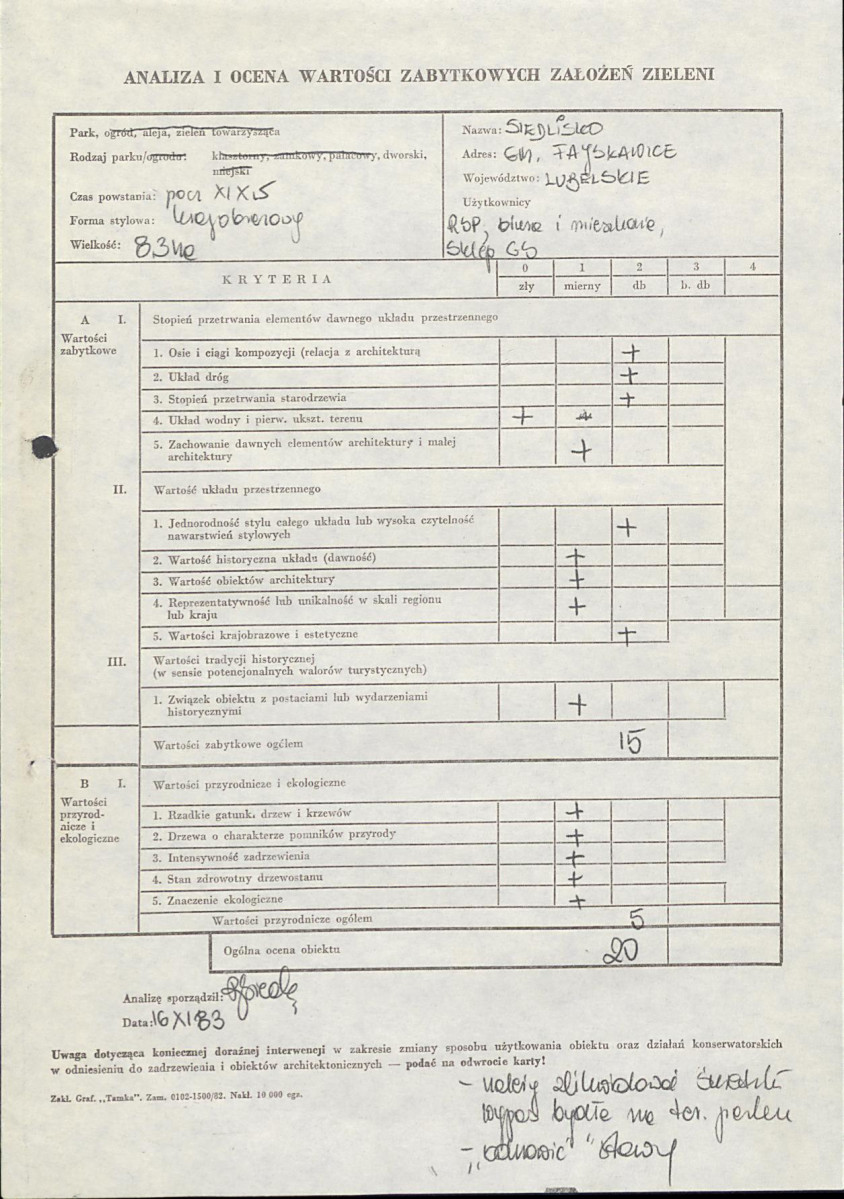 ANALIZA I OCENA WARTOŚCI ZABYTKOWYCH ZAŁOŻEŃ ZIELENI
Park, ogród, aleja, zieleń towarzysząca
Rodzaj parku/ogrodu: klasztorny, zamkowy, pałacowy, dworski,
miejski
Czas powstania: pocz XIX S
Forma stylowa: krajobrazowy
Wielkość: 8,3 ha
Nazwa: SIEDLISKO
Adres: GM, FAJSŁAWICE
Województwo: LUBELSKIE
Użytkownicy
RSP, biura i mieszkanie,
Sklep GS
KRYTERIA
0 1 2 3 4
zły mierny db b. db
A I. Stopień przetrwania elementów dawnego układu przestrzennego
Wartości
zabytkowe
1. Osie i ciągi kompozycji (relacja z architekturą +
2. Układ dróg +
3. Stopień przetrwania starodrzewia +
4. Układ wodny i pierw. ukszt. terenu + +
5. Zachowanie dawnych elementów architektury i małej
architektury +
II. Wartość układu przestrzennego
1. Jednorodność stylu całego układu lub wysoka czytelność
nawarstwień stylowych +
2. Wartość historyczna układu (dawność) +
3. Wartość obiektów architektury +
4. Reprezentatywność lub unikalność w skali regionu
lub kraju +
5. Wartości krajobrazowe i estetyczne +
III. Wartości tradycji historycznej
(w sensie potencjonalnych walorów turystycznych)
1. Związek obiektu z postaciami lub wydarzeniami
historycznymi +
Wartości zabytkowe ogółem 15
B I. Wartości przyrodnicze i ekologiczne
Wartości
przyrod-
nicze i
ekologiczne
1. Rzadkie gatunki drzew i krzewów +
2. Drzewa o charakterze pomników przyrody +
3. Intensywność zadrzewienia +
4. Stan zdrowotny drzewostanu +
5. Znaczenie ekologiczne +
Wartości przyrodnicze ogółem 5
Ogólna ocena obiektu 20
Analizę sporządził:
Data: 16 XI 83
Uwaga dotycząca koniecznej doraźnej interwencji w zakresie zmiany sposobu użytkowania obiektu oraz działań konserwatorskich
w odniesieniu do zadrzewienia i obiektów architektonicznych — podać na odwrocie karty!
Zakł. Graf. „Tamka”. Zam. 0102-1500/82. Nakł. 10 000 egz.
- należy zlikwidować
wypas bydła na ter. parku
- „odnowić” stawy